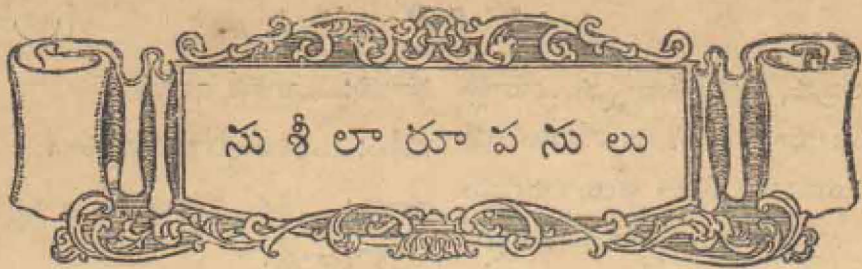 సు శీ లా రూ ప సు లు